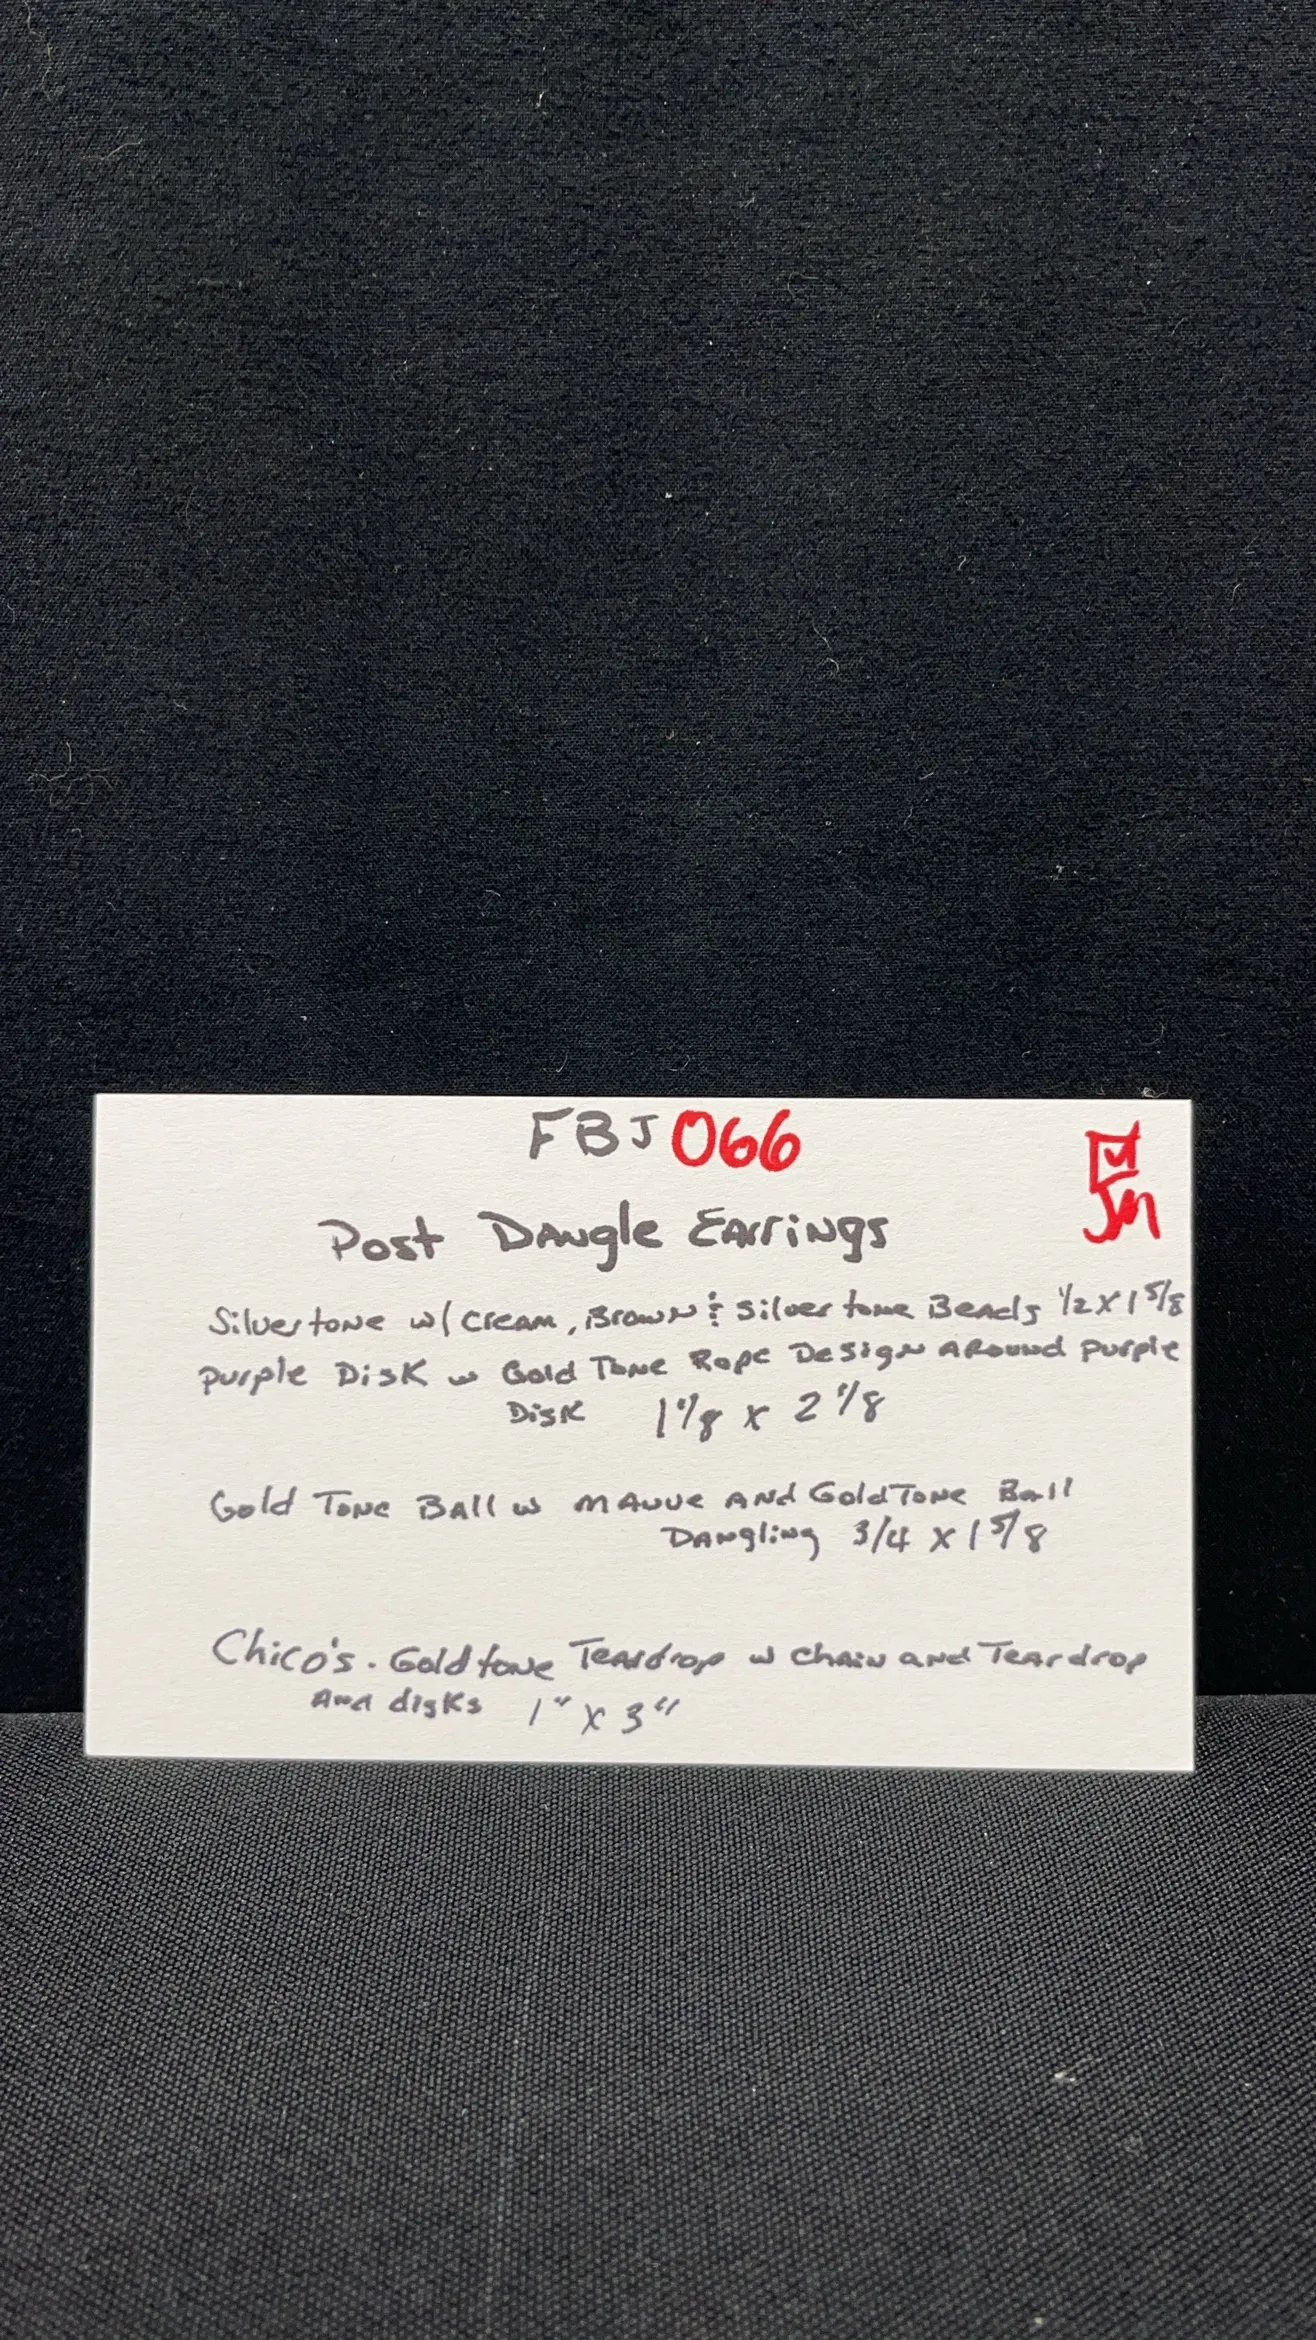 FBJ 066
Post Dangle Earrings
Silvertone w/ Cream, Brown & Silver tone Beads 1/2 X 1 5/8
Purple Disk w Gold Tone Rope Design Around Purple
Disk 1 1/8 x 2 1/8
Gold Tone Ball w Mauve And Gold Tone Ball
Dangling 3/4 X 1 5/8
Chico's. Goldtone Teardrop w Chain and Teardrop
And disks 1" X 3"